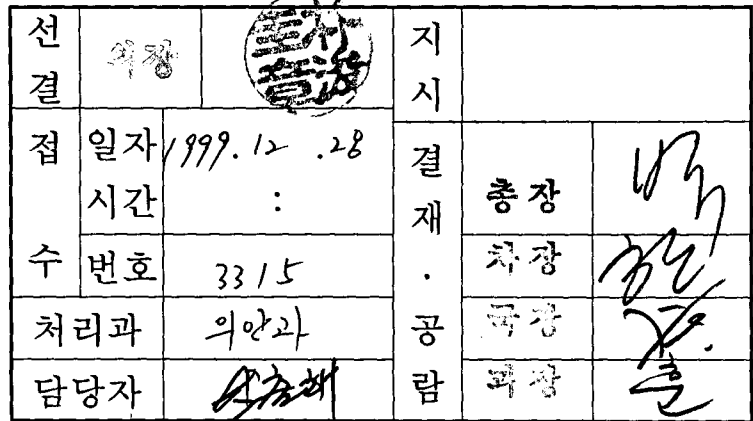 선결 의장 지시
접수 일자 1999. 12 .28 결재·공람 총장
시간 :
번호 3315 차장
처리과 의안과 국장
담당자 과장